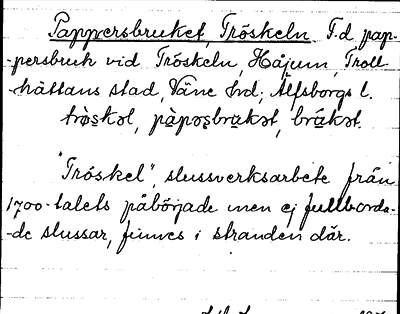 Pappersbruket, Tröskeln. F.d. pap-
-persbruk vid Tröskeln, Håjum, Troll-
-hättans stad, Väne hd; Älfsborgs l.
trø̀skəl, pàpəṣbrukət, brúkət.
"Tröskel", slussverksarbete från
1700-talets påbörjade men ej fullborda-
-de slussar, finnes i stranden där.